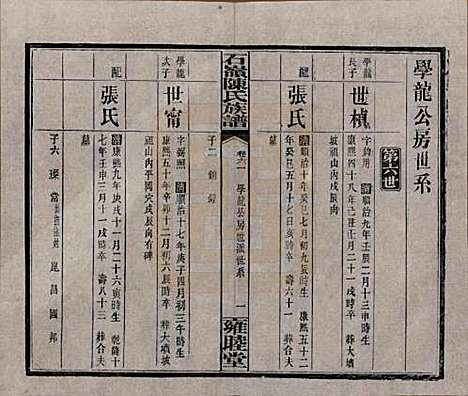 學龍公房世系
第十六世
學龍
長子
世楨
字殿用 清順治九年壬辰二月十三申時生
康熙四十八年己丑十二月十一戌時卒 葬大墳
坡祖山內戌辰向
配
張氏
清順治十年癸巳七月初九辰時生 康熙五十二
年癸巳五月十七日亥時卒 壽六十一 葬合夫
墓
子二 錦 錞
石嶺陳氏族譜
卷六 學龍公房世派世系 一
雍睦堂
學龍
次子
世甯
字爕熙 清順治十七年庚子四月初三午時生
康熙五十年辛卯十二月初六辰時卒 葬大墳坡
祖山內平岡穴戌辰向有碑
配
張氏
清康熙九年庚戌十一月二十六寅時生 乾隆十
七年壬申三月十一戌時卒 壽八十三 葬合夫
墓
子六 崑 昌 國 邦